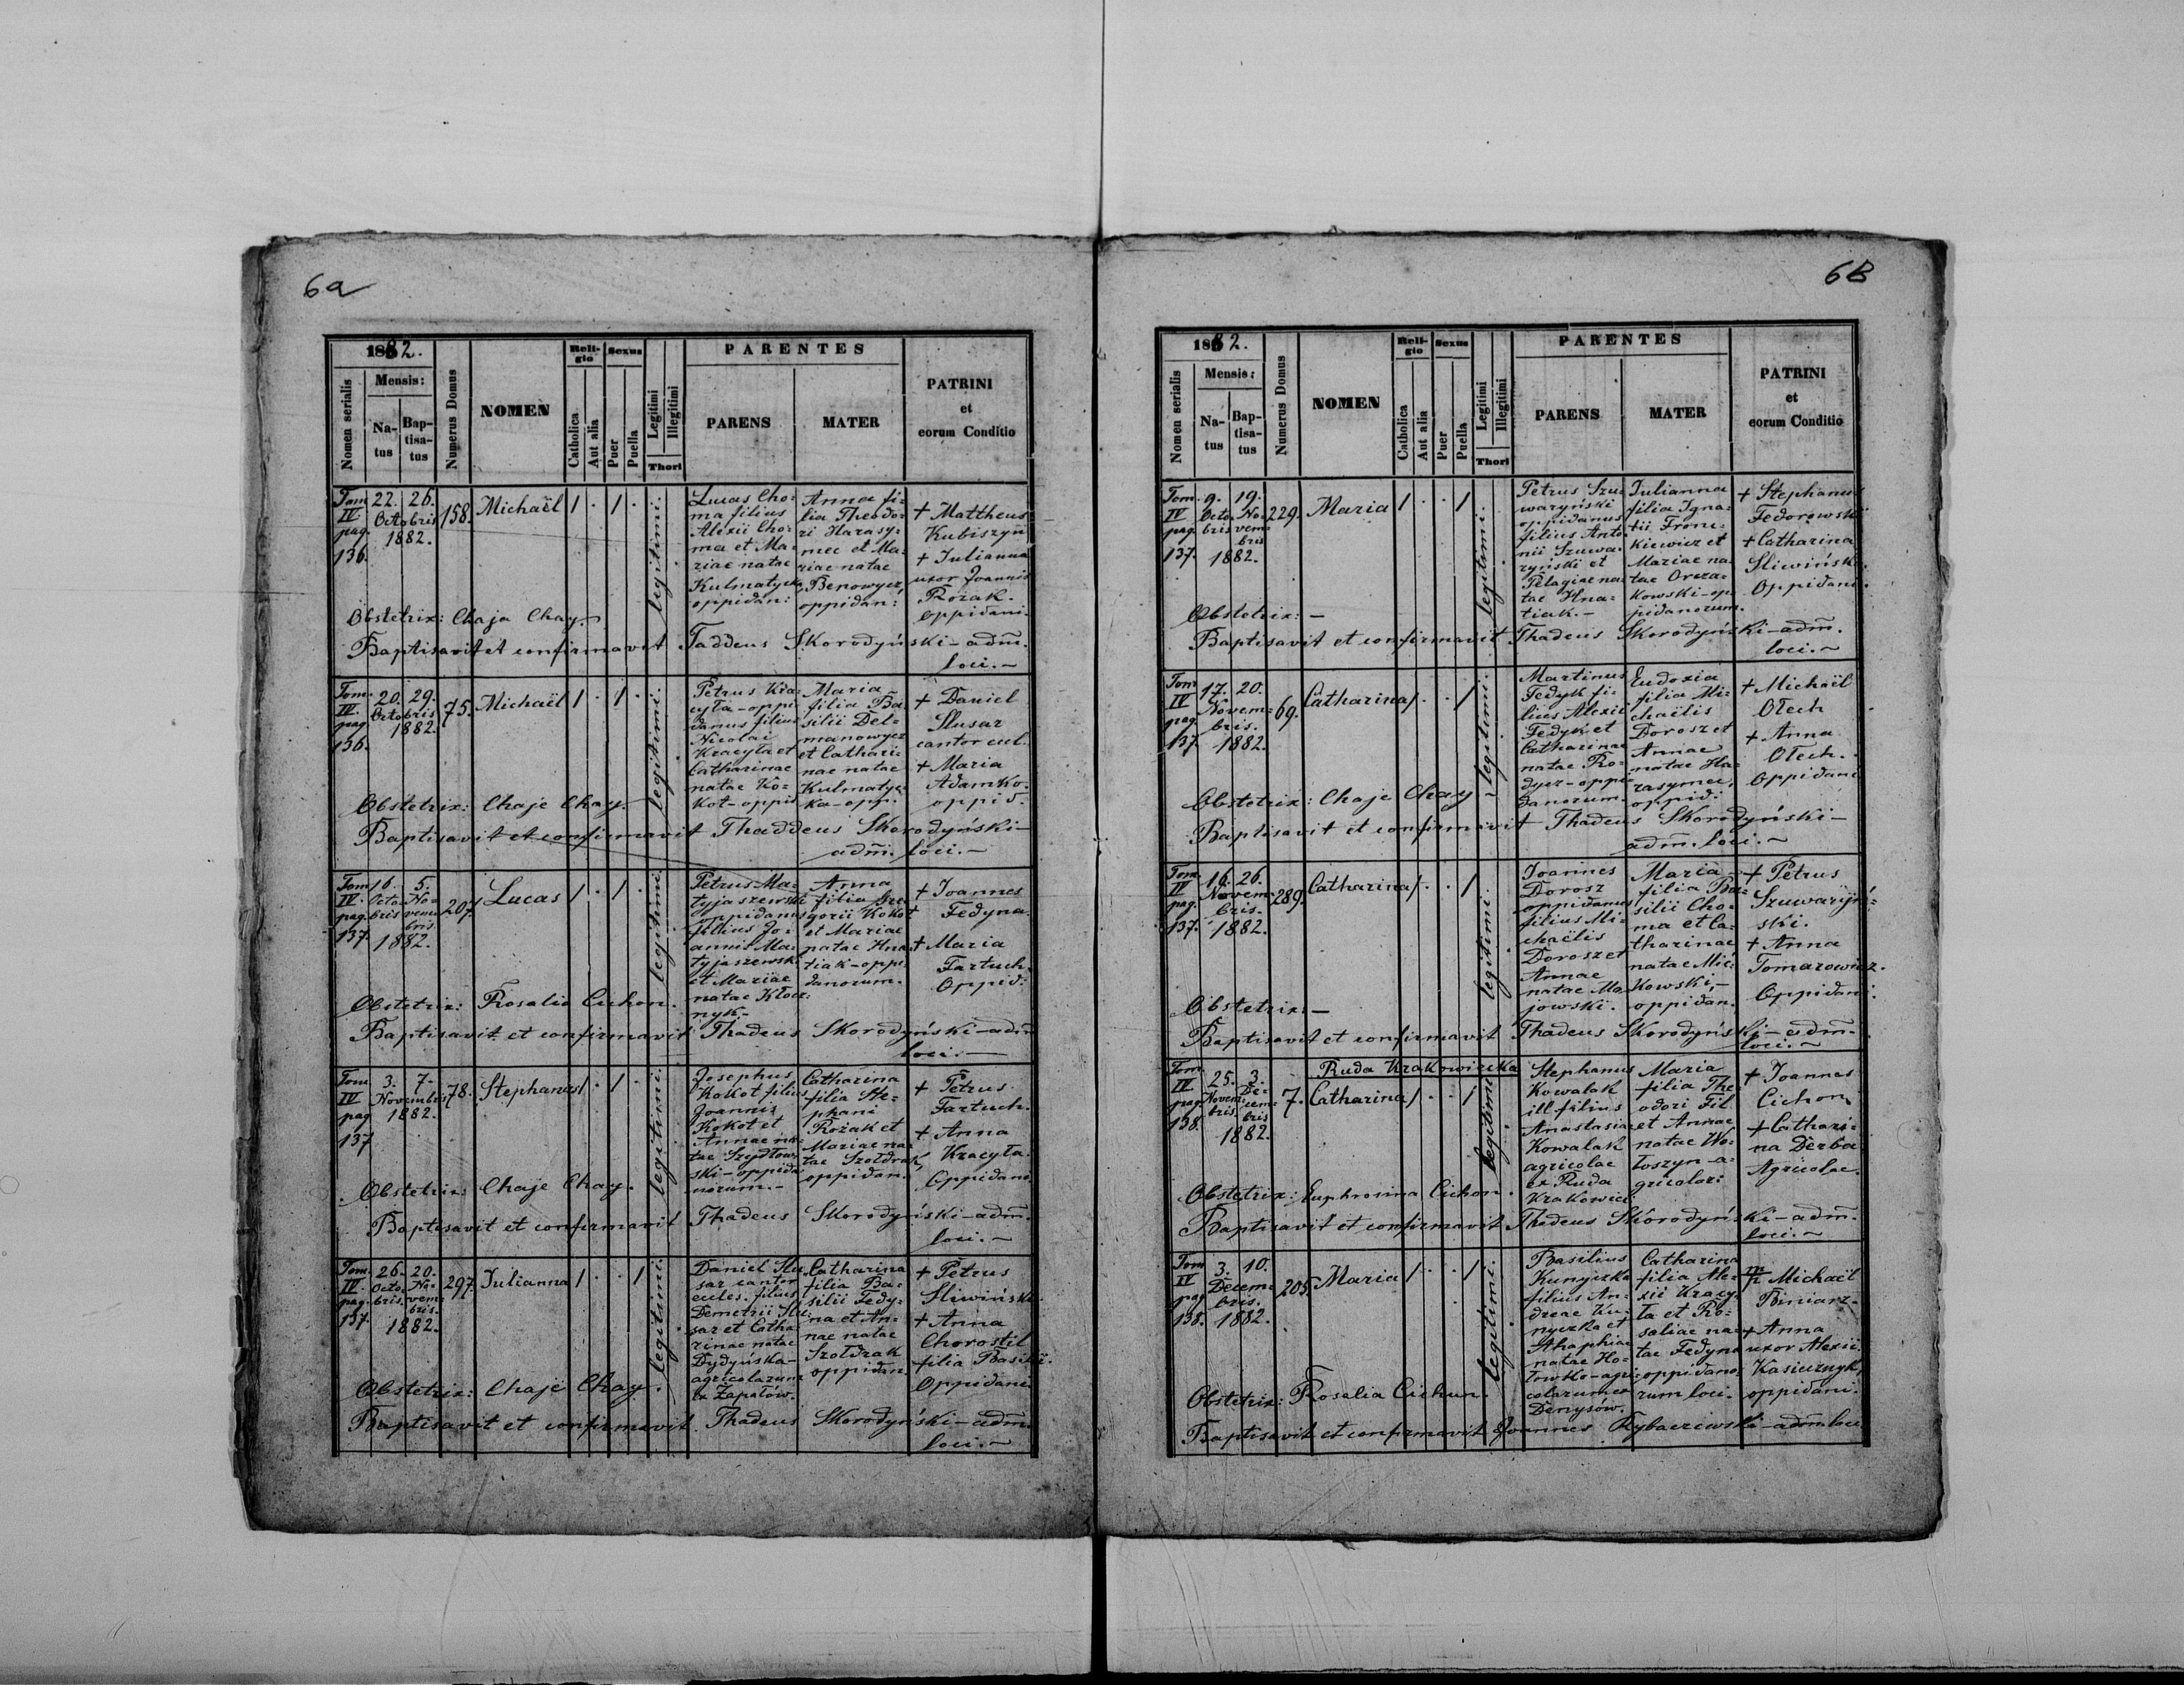 6a
1882.
Mensis:
Nomen serialis
Na-
tus
Bap-
tisa-
tus
Numerus Domus
NOMEN
Reli-
gio
Catholica
Aut alia
Sexus
Puer
Puella
Legitimi
Illegitimi
Thori
PARENTES
PARENS
MATER
PATRINI
et
eorum Conditio
Tom
IV
pag.
136.
22. 26.
Octobris
1882.
158.
Michaël
1 . 1 .
legitimi.
Lucas Cho-
ma filius
Alexii Cho-
ma et Ma-
riae natae
Kulmatycka
oppidan:
Anna fi-
lia Theodo-
ri Harasy-
mec et Ma-
riae natae
Benowycz,
oppidan:
+ Mattheus
Kubiszyn
+ Julianna
uxor Joannis
Rozak.
Oppidani.
Obstetrix: Chaja Chay.
Baptisavit et confirmavit Taddeus Skorodyński - adm.
loci. ~
Tom.
IV.
pag.
136.
20. 29.
Octobris
1882.
75.
Michaël
1 . 1 .
legitimi.
Petrus Kra-
cyła - oppi-
danus filius
Nicolai
Kracyła et
Catharinae
natae Ko-
kot - oppid
Maria
filia Ba-
silii Del-
manowycz
et Cathari-
nae natae
Kulmatyc-
ka - opp.
+ Daniel
Slusar
cantor eccl.
+ Maria
Adamko.
oppid.
Obstetrix: Chaje Chay.
Baptisavit et confirmavit Thaddeus Skorodyński -
adm. loci. ~
Tom
IV.
pag.
137.
16. 5.
Octo- No-
bris vem-
bris.
1882.
207.
Lucas
1 . 1 .
legitimi
Petrus Ma-
tyjaszewski
oppidanus
filius Jo-
annis Ma-
tyjaszewski
et Mariae
natae Kłocz-
nyk.
Anna
filia Gre-
gorii Kokot
et Mariae
natae Hna-
tiak - oppi-
danorum.
+ Joannes
Fedyna
+ Maria
Fartuch.
Oppid:
Obstetrix: Rosalia Cichon.
Baptisavit et confirmavit Thadeus Skorodyński - adm
loci. -
Tom
IV
pag
137
3. 7.
Novembris
1882.
78.
Stephanus
1 . 1 .
legitimi.
Josephus
Kokot filius
Joannis
Kokot et
Annae na-
tae Szydłow-
ski - oppida-
norum. -
Catharina
filia Ste-
phani
Rozak et
Mariae na-
tae Szoldrak,
oppidan.
+ Petrus
Fartuch.
+ Anna
Kracyła.
Oppidani
Obstetrix: Chaje Chay.
Baptisavit et confirmavit Thadeus Skorodyński - adm.
loci. ~
Tom.
IV.
pag.
137.
26. 20.
Octo- No-
bris. vem-
bris.
1882.
297.
Julianna
1 . . 1
legitimi.
Daniel Slu-
sar cantor
eccles. filius
Demetrii Slu-
sar et Catha-
rinae natae
Dydyńska -
agricolarum
ex Zapałów.
Catharina
filia Ba-
silii Fedy-
na et An-
nae natae
Szoldrak
oppidan
+ Petrus
Sliwiński.
+ Anna
Chorostil
filia Basilii.
Oppidani.
Obstetrix: Chaje Chay.
Baptisavit et confirmavit. Thadeus Skorodyński - adm.
loci. ~
6B
1882.
Mensis:
Nomen serialis
Na-
tus
Bap-
tisa-
tus
Numerus Domus
NOMEN
Reli-
gio
Catholica
Aut alia
Sexus
Puer
Puella
Legitimi
Illegitimi
Thori
PARENTES
PARENS
MATER
PATRINI
et
eorum Conditio
Tom.
IV
pag.
137.
9. 19.
Octo- No-
bris vem-
bris
1882.
229.
Maria
1 . . 1
legitimi.
Petrus Szu-
waryński
oppidanus
filius Anto-
nii Szuwa-
ryński et
Pelagiae na-
tae Hna-
tiak. -
Julianna
filia Igna-
tii Fron-
kiewicz et
Mariae na-
tae Orcza-
kowski - op-
pidanorum.
+ Stephanus
Fedorowski
+ Catharina
Sliwińsk.
Oppidani.
Obstetrix: -
Baptisavit et confirmavit. Thadeus Skorodyński - adm.
loci. ~
Tom
IV
pag.
137.
17. 20.
Novem-
bris.
1882.
69.
Catharina
1 . . 1
legitimi.
Martinus
Fedyk fi-
lius Alexii
Fedyk et
Catharinae
natae Ro-
dycz - oppi-
danorum.
Eudoxia
filia Mi-
chaëlis
Dorosz et
Annae
natae Ha-
rasymec,
oppid:
+ Michaël
Olech
+ Anna
Olech.
Oppidani
Obstetrix: Chaje Chay -
Baptisavit et confirmavit Thadeus Skorodyński -
adm. loci. ~
Tom.
IV
pag.
137.
16. 26.
Novem-
bris.
1882.
289.
Catharina
1 . . 1
legitimi.
Joannes
Dorosz
oppidanus
filius Mi-
chaëlis
Dorosz et
Annae
natae Ma-
jowski.
Maria
filia Ba-
silii Cho-
ma et Ca-
tharinae
natae Mić-
kowski, -
oppidan.
+ Petrus
Szuwaryń-
ski.
+ Anna
Tomarowicz.
Oppidani.
Obstetrix: -
Baptisavit et confirmavit Thadeus Skorodyński - adm.
loci. ~
Ruda Krakowiecka
Tom
IV
pag.
138.
25. 3.
Novem- De-
bris. cem-
bris
1882.
7.
Catharina
1 . . 1
legitimi
Stephanus
Kowalak
ill. filius
Anastasiae
Kowalak
agricolae
ex Ruda
Krakowiec.
Maria
filia The-
odori Fil
et Annae
natae Wo-
łoszyn - a-
gricolar:
+ Joannes
Cichon
+ Cathari-
na Derba
Agricolae.
Obstetrix: Euphrosina Cichon.
Baptisavit et confirmavit. Thadeus Skorodyński - adm.
loci. ~
Tom
IV
pag
138.
3. 10.
Decem-
bris.
1882.
205.
Maria
1 . . 1
legitimi.
Basilius
Kunyczka
filius An-
dreae Ku-
nyczka et
Ahaphiae
natae Ho-
łowko - agri-
colarum ex
Denysów.
Catharina
filia Ale-
xii Kracy-
ła et Ro-
saliae na-
tae Fedyna
oppidano-
rum loci.
Michaël
Biniarz -
+ Anna
uxor Alexii
Kasiurnyk,
oppidani.
Obstetrix: Rosalia Cichun.
Baptisavit et confirmavit Joannes Rybaczewski - adm. loci